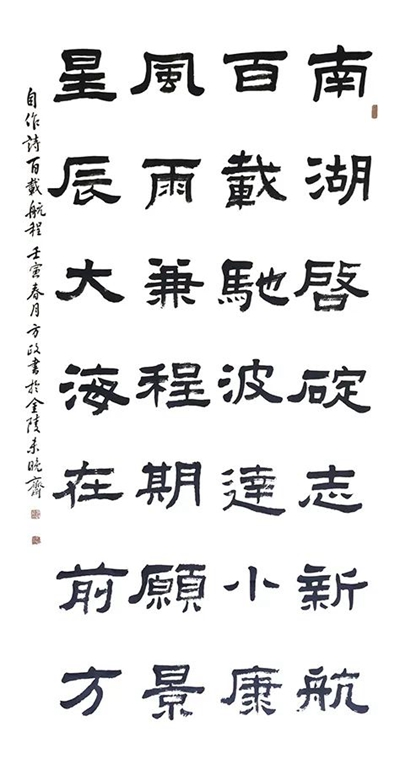 南湖啓碇志新航
百載馳波達小康
風雨兼程期願景
星辰大海在前方
自作詩百載航程壬寅春月方政書於金陵未晚齋